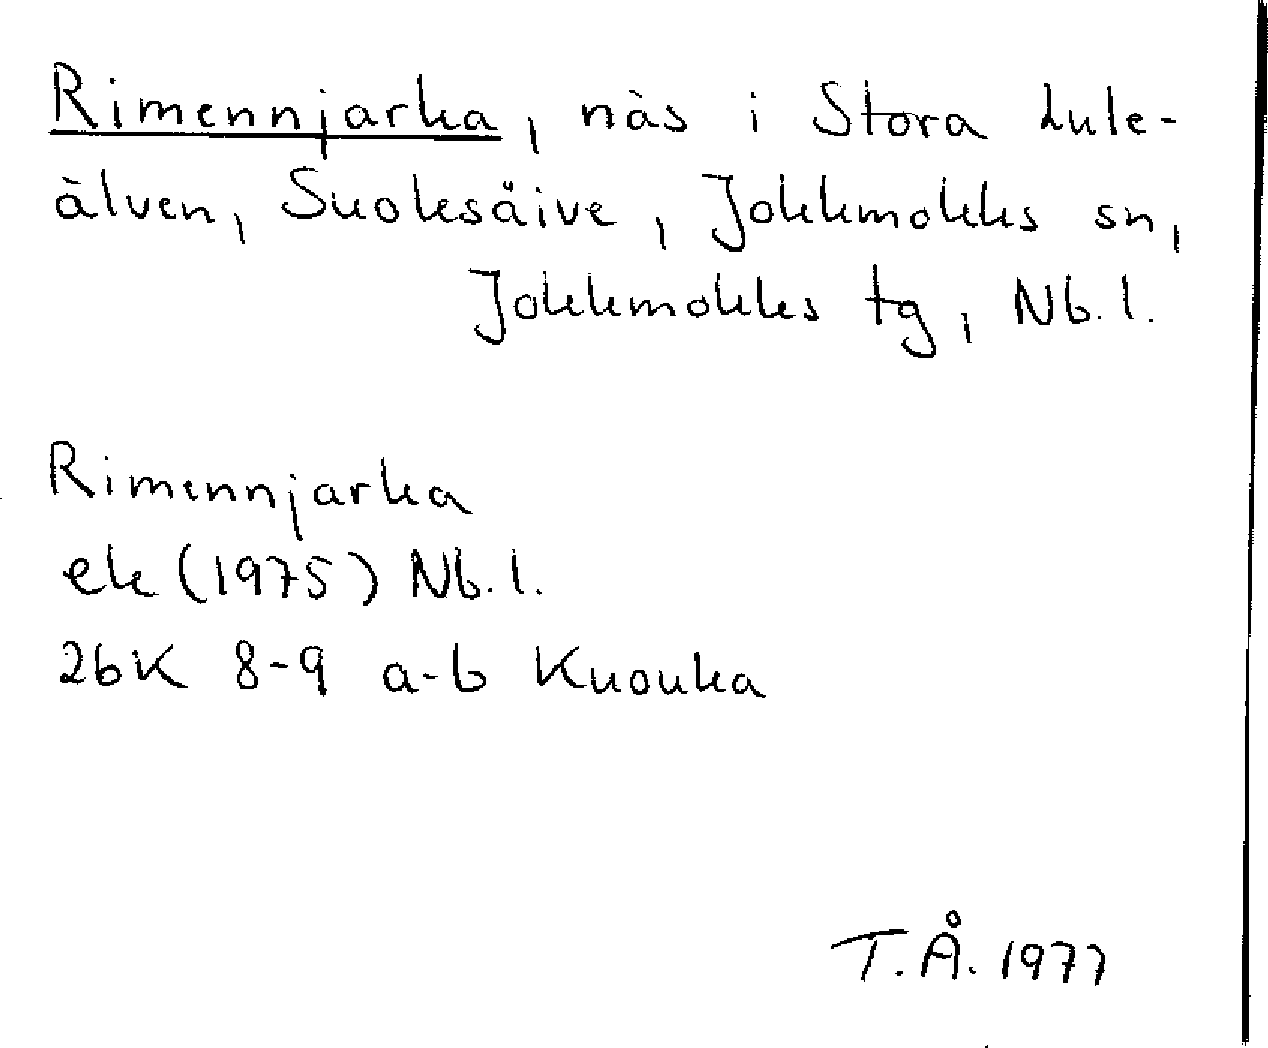 Rimennjarka, näs i Stora Lule-
älven, Suoksäive, Jokkmokks sn,
Jokkmokks tg, Nb. l.
Rimennjarka
ek (1975) Nb. l.
26K 8-9 a-b Kuouka
T. Å. 1977